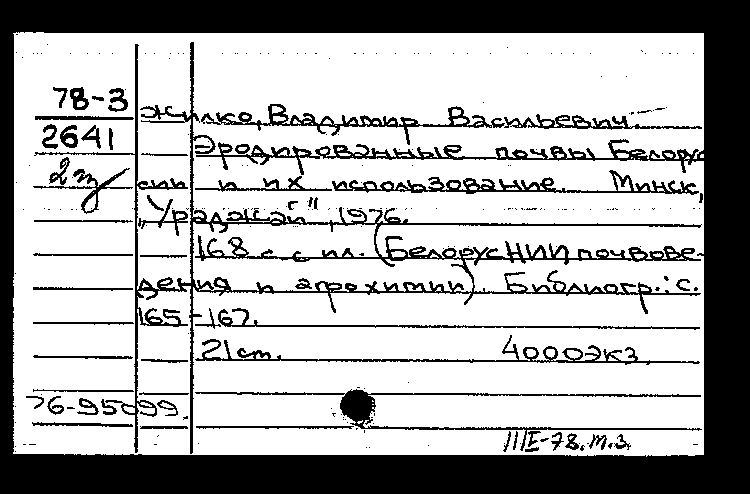 78-3
2641
2 эк
Жилко, Владимир Васильевич.
Эродированные почвы Белорус
сии и их использование. Минск,
„Ураджай", 1976.
168 с. с ил. (БелорусНИИ почвове-
дения и агрохимии). Библиогр.: с.
165-167.
21 см. 4000экз.
76-95099.
III-78. т.з.